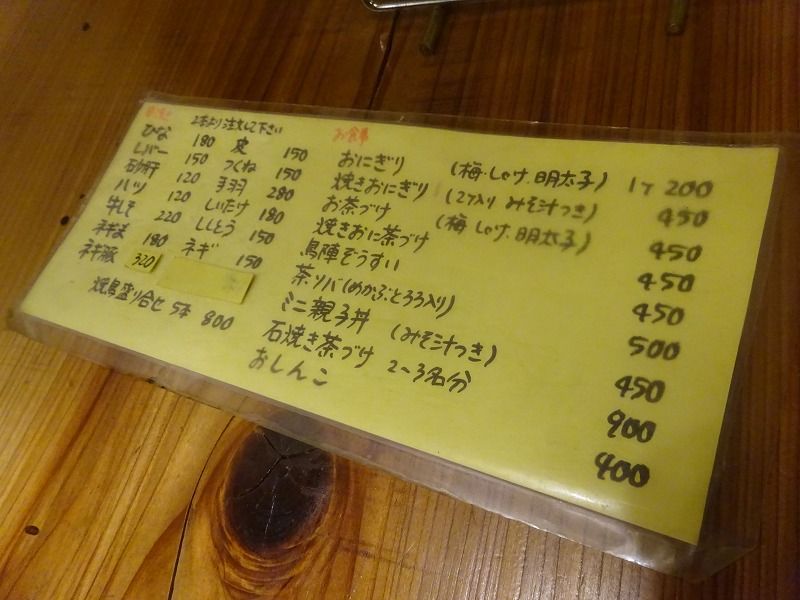 2本より注文して下さい
ひな 180 皮 150
レバー 150 つくね 150
砂肝 120 手羽 280
ハツ 120 しいたけ 180
牛しそ 220 ししとう 150
ネギま 180 ネギ 150
ネギ豚 320
焼鳥盛り合せ 5本 800
お食事
おにぎり (梅・しゃけ・明太子) 1ケ 200
焼きおにぎり (2ケ入り みそ汁つき) 450
お茶づけ (梅 しゃけ・明太子) 450
焼きおに茶づけ 450
鳥陣ぞうすい 450
茶ソバ(めかぶとろろ入り) 500
ミニ親子丼 (みそ汁つき) 450
石焼き茶づけ 2~3名分 900
おしんこ 400